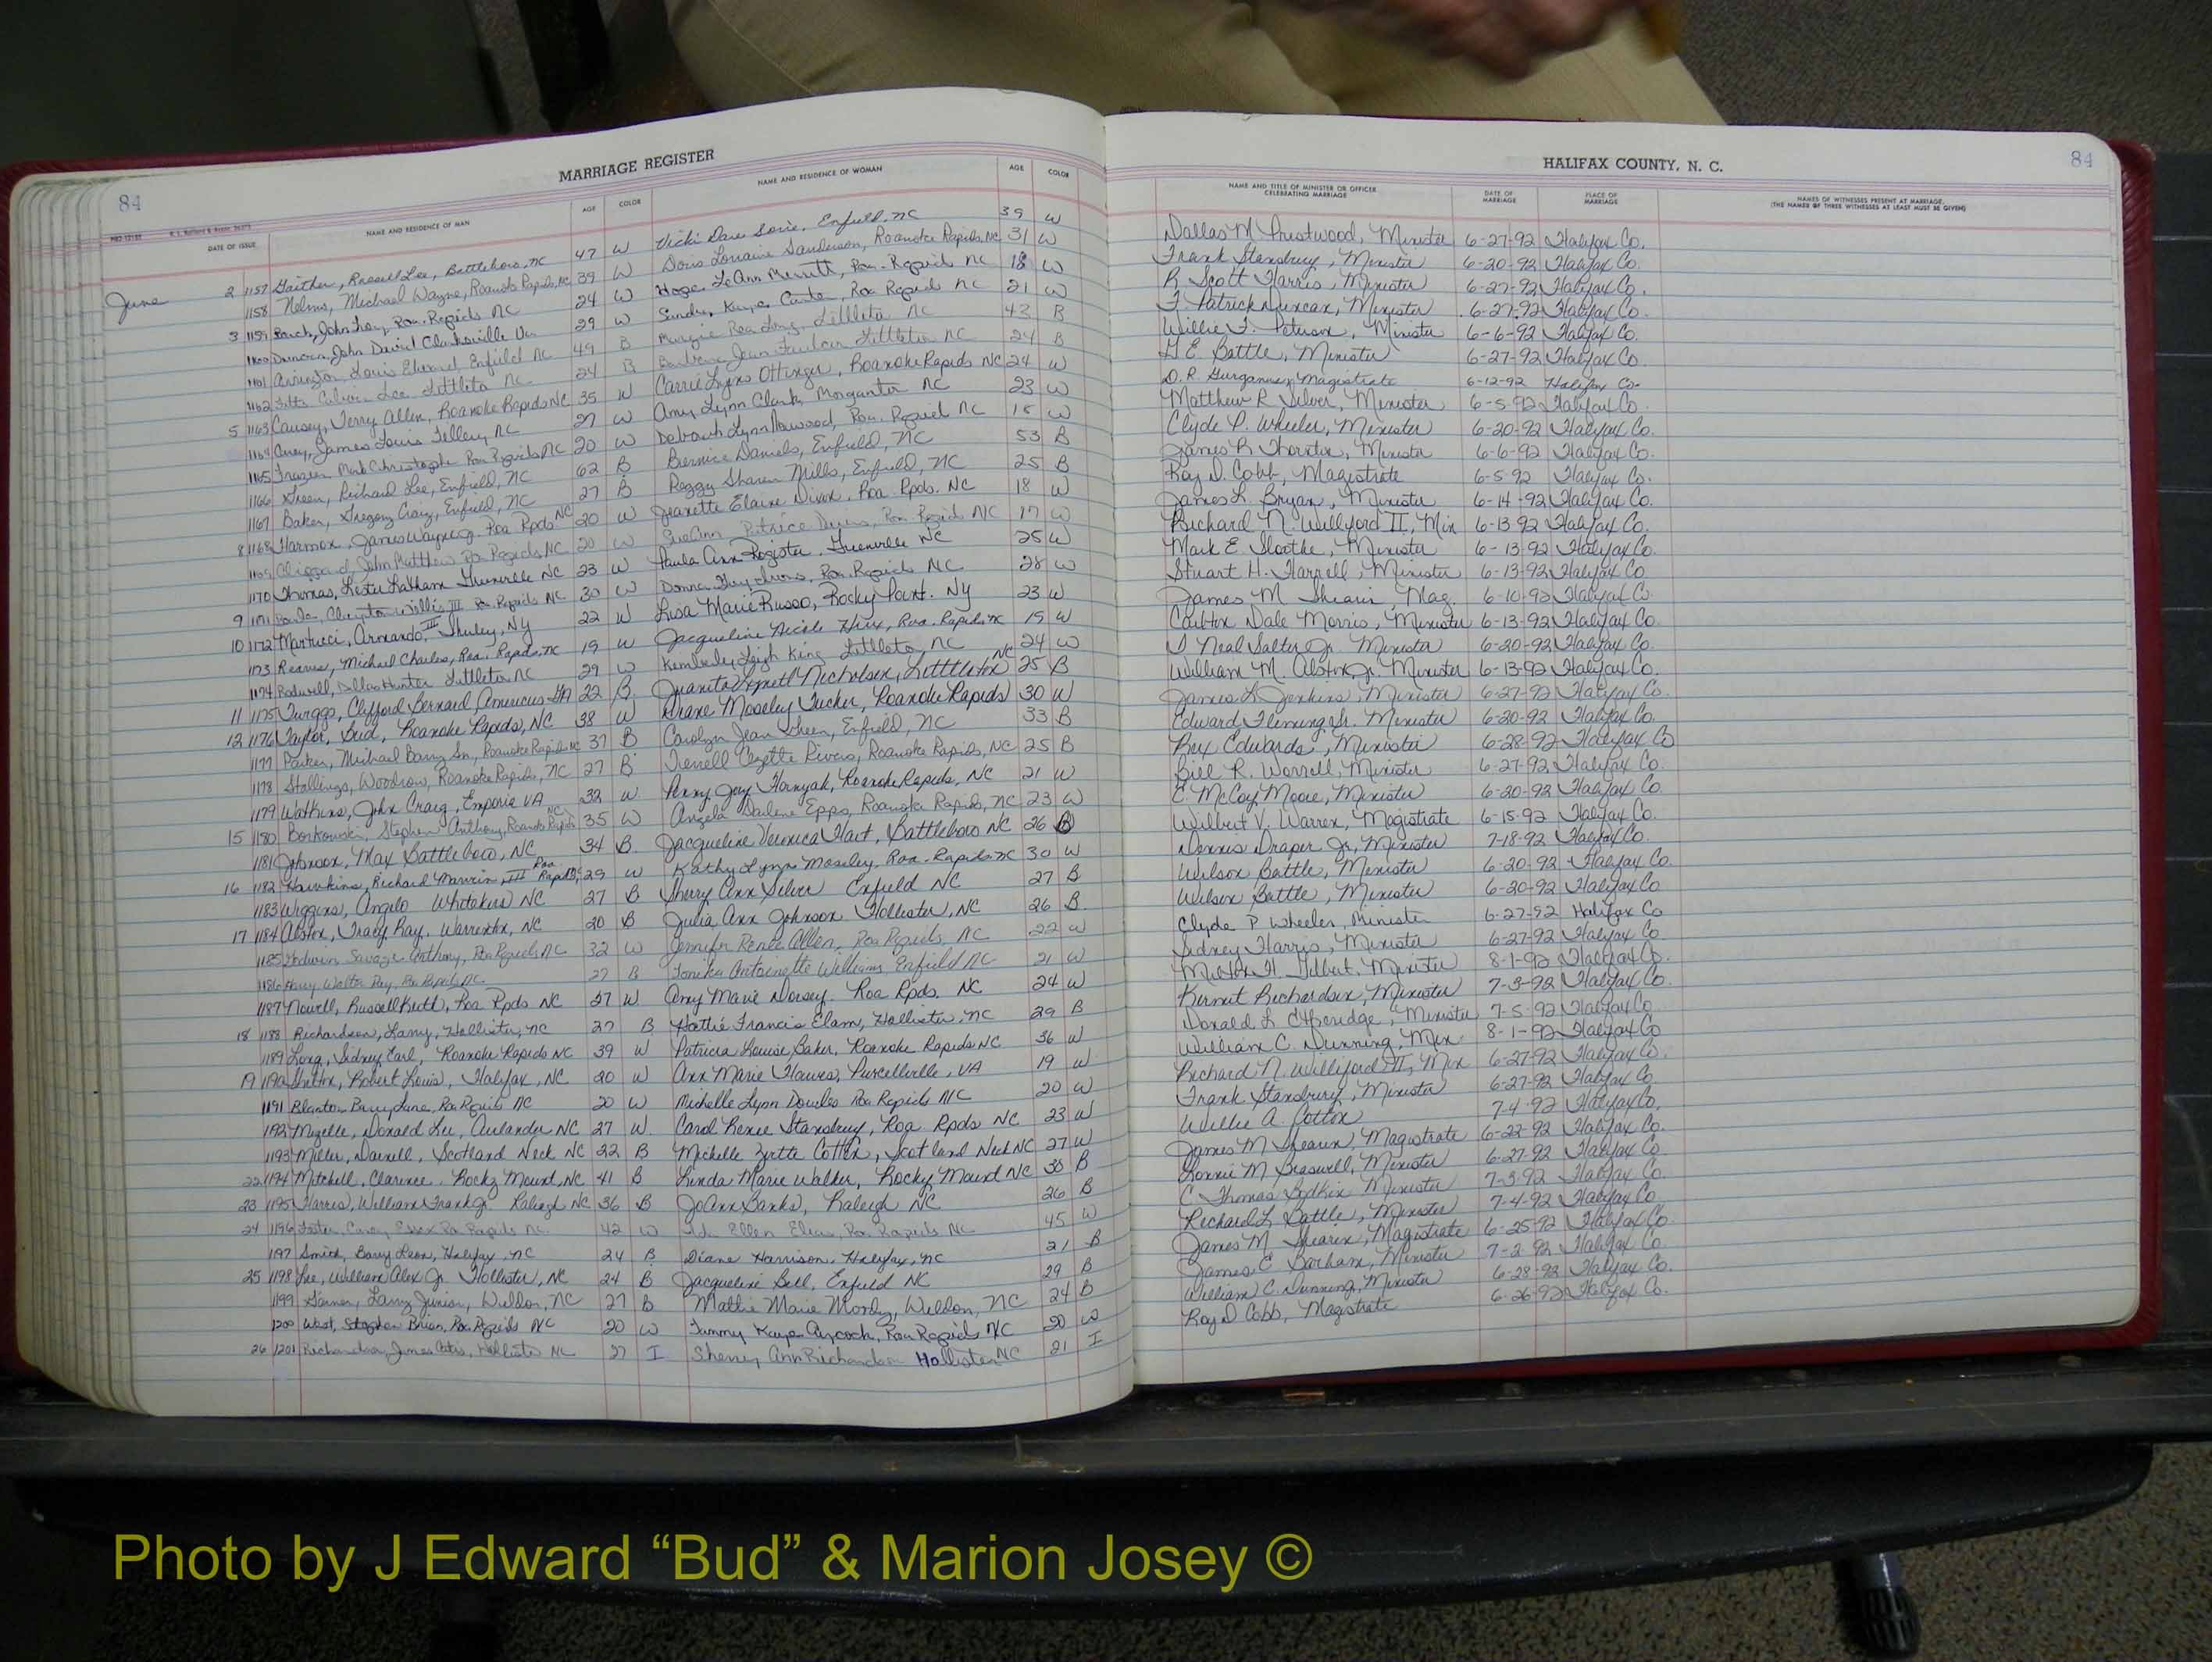 84
MARRIAGE REGISTER
DATE OF ISSUE NAME AND RESIDENCE OF MAN AGE COLOR NAME AND RESIDENCE OF WOMAN AGE COLOR
June 2 1157 Gaither, Russell Lee, Battleboro, NC 47 W Vicki Dare Enfield, NC 39 W
1158 Nelms, Michael Wayne, Roanoke Rapids, NC 39 W Doris Lorraine Sanderson, Roanoke Rapids, NC 31 W
3 1159 John Roa. Rapids NC 24 W Hope LeAnn Merritt, Roa. Rapids NC 18 W
1160 Duncan, John David Clarksville Va 29 W Sandra Kaye Carter, Roa Rapids NC 21 W
1161 Arrington, Louis Edward, Enfield NC 49 B Margie Rea Long, Littleton NC 43 B
1162 Fitts Calvin Lee Littleton NC 24 B Barbara Jean Littleton NC 24 B
5 1163 Causey, Terry Allen, Roanoke Rapids NC 35 W Carrie Lynn Ottinger, Roanoke Rapids NC 24 W
1164 James Louis Tillery NC 27 W Amy Lynn Clark, Morganton NC 23 W
1165 Frazier Mark Christopher Roa Rapids NC 20 W Deborah Lynn Harwood, Roa. Rapid NC 18 W
1166 Green, Richard Lee, Enfield, NC 62 B Bernice Daniels, Enfield, NC 53 B
1167 Baker, Gregory Craig, Enfield, NC 27 B Peggy Sharon Mills, Enfield, NC 25 B
8 1168 Harmon, James Wayne Jr. Roa Rpds NC 20 W Jeanette Elaine Dixon, Roa. Rpds. NC 18 W
1169 John Matthew Roa Rapids NC 20 W SueAnn Patrice Roa. Rapid NC 17 W
1170 Thomas, Lester Latham Greenville NC 23 W Paula Ann Register, Greenville NC 25 W
9 1171 Clayton Willis III Roa Rapids NC 30 W Donna Roa. Rapids NC 28 W
10 1172 Martucci, Armando III Shirley, NY 22 W Lisa Marie Russo, Rocky Point, NY 23 W
1173 Reaves, Michael Charles, Roa. Rapids, NC 19 W Jacqueline Nicole Hux, Roa. Rapids NC 19 W
1174 Rodwell, Dallas Hunter Littleton NC 29 W Kemberly Leigh King Littleton, NC 24 W
11 1175 Clifford Bernard Americus GA 22 B Juanita Nicholson, Littleton NC 25 B
12 1176 Taylor, Bud, Roanoke Rapids, NC 38 W Diane Moseley Tucker, Roanoke Rapids 30 W
1177 Parker, Michael Barry Sr., Roanoke Rapids NC 37 B Carolyn Jean Green, Enfield, NC 33 B
1178 Stallings, Woodrow, Roanoke Rapids, NC 27 B Cozette Rivers, Roanoke Rapids, NC 25 B
1179 Watkins, John Craig, Emporia VA 32 W Penny Joy Roanoke Rapids, NC 21 W
15 1180 Borkowski Stephen Anthony, Roanoke Rapids NC 35 W Angela Darlene Epps, Roanoke Rapids, NC 23 W
1181 Johnson, Max Battleboro, NC 34 B Jacqueline Veronica Hart, Battleboro NC 26 B
16 1182 Hawkins, Richard Marvin, III Roa Rapids, 29 W Kathy Lynn Moseley, Roa. Rapids NC 30 W
1183 Wiggins, Angelo Whitakers NC 27 B Sherry Ann Silver Enfield NC 27 B
17 1184 Alston, Tracy Ray, Warrenton, NC 20 B Julia Ann Johnson Hollister, NC 26 B
1185 Godwin Savage Anthony, Roa Rapids NC 32 W Jennifer Renee Allen, Roa Rapids, NC 22 W
1186 Walter Ray, Roa Rapids NC 27 B Antoinette Williams Enfield NC 21 W
1187 Nowell, Russell Keith, Roa Rpds NC 27 W Amy Marie Dorsey, Roa Rpds. NC 24 W
18 1188 Richardson, Larry, Hollister, NC 27 B Hattie Francis Elam, Hollister, NC 29 B
1189 Long, Sidney Earl, Roanoke Rapids NC 39 W Patricia Louise Baker, Roanoke Rapids NC 36 W
19 1190 Robert Louis, Halifax, NC 20 W Ann Marie Hawes, Purcellville, VA 19 W
1191 Blanton Lane, Roa Rapids NC 20 W Michelle Lynn Roa Rapids NC 20 W
1192 Mizelle, Donald Lee, Aulander NC 27 W Carol Renee Stansbury, Roa Rpds NC 23 W
1193 Miller, Darnell, Scotland Neck NC 22 B Michelle Cotten, Scotland Neck NC 27 W
22 1194 Mitchell, Clarence Rocky Mount, NC 41 B Linda Marie Walker, Rocky Mount NC 38 B
23 1195 Harris, William Frank Jr. Raleigh NC 36 B JoAnn Banks, Raleigh NC 26 B
24 1196 Foster, Carey Essex Roa Rapids NC 42 W Ellen Roa Rapids NC 45 W
1197 Smith, Barry Leon, Halifax, NC 24 B Diane Harrison, Halifax, NC 21 B
25 1198 Lee, William Alex Jr. Hollister, NC 24 B Jacqueline Bell, Enfield NC 29 B
1199 Garner, Larry Junior, Weldon, NC 27 B Mattie Marie Moody, Weldon, NC 24 B
1200 West, Stephen Brian, Roa Rapids NC 20 W Tammy Kaye Aycock, Roa Rapids NC 20 W
26 1201 Richardson, James Hollister NC 27 I Sherry Ann Richardson Hollister NC 21 I
HALIFAX COUNTY, N. C.
84
NAME AND TITLE OF MINISTER OR OFFICER CELEBRATING MARRIAGE DATE OF MARRIAGE PLACE OF MARRIAGE NAMES OF WITNESSES PRESENT AT MARRIAGE. (THE NAMES OF THREE WITNESSES AT LEAST MUST BE GIVEN)
Dallas M Prestwood, Minister 6-27-92 Halifax Co.
Frank Stansbury, Minister 6-20-92 Halifax Co.
R Scott Harris, Minister 6-27-92 Halifax Co.
F. Patrick Duncan, Minister 6-27-92 Halifax Co.
Willie F. Peterson, Minister 6-6-92 Halifax Co.
H E. Battle, Minister 6-27-92 Halifax Co.
D. R. Gurganus, Magistrate 6-12-92 Halifax Co.
Matthew R Silver, Minister 6-5-92 Halifax Co.
Clyde P. Wheeler, Minister 6-20-92 Halifax Co.
James R Thornton, Minister 6-6-92 Halifax Co.
Roy D. Cobb, Magistrate 6-5-92 Halifax Co.
James L. Bryan, Minister 6-14-92 Halifax Co.
Richard N. Williford II, Min 6-13-92 Halifax Co.
Mark E. Minister 6-13-92 Halifax Co.
Stuart H. Harrell, Minister 6-13-92 Halifax Co
James M Shearin, Mag. 6-10-92 Halifax Co
Carlton Dale Morris, Minister 6-13-92 Halifax Co.
J Neal Salter Jr. Minister 6-20-92 Halifax Co.
William M. Alston, Jr. Minister 6-13-92 Halifax Co.
James L Jenkins, Minister 6-27-92 Halifax Co.
Edward Fleming Jr. Minister 6-20-92 Halifax Co.
Rex Edwards, Minister 6-28-92 Halifax Co
Bill R. Worrell, Minister 6-27-92 Halifax Co.
C. McCoy Moore, Minister 6-20-92 Halifax Co.
Wilbert V. Warren, Magistrate 6-15-92 Halifax Co.
Dennis Draper Jr, Minister 7-18-92 Halifax Co.
Wilson Battle, Minister 6-20-92 Halifax Co.
Wilson Battle, Minister 6-20-92 Halifax Co
Clyde P Wheeler, Minister 6-27-92 Halifax Co
Sidney Harris, Minister 6-27-92 Halifax Co
Milton H. Gilbert, Minister 8-1-92 Halifax Co.
Kermit Richardson, Minister 7-3-92 Halifax Co.
Donald L Etheridge, Minister 7-5-92 Halifax Co
William C. Dunning, Min 8-1-92 Halifax Co
Richard N. Williford II, Min 6-27-92 Halifax Co.
Frank Stansbury, Minister 6-27-92 Halifax Co
Willie A. Cotton 7-4-92 Halifax Co.
James M Shearin, Magistrate 6-22-92 Halifax Co.
Lonnie M Braswell, Minister 6-27-92 Halifax Co.
C Thomas Minister 7-3-92 Halifax Co.
Richard L Battle, Minister 7-4-92 Halifax Co
James M Shearin, Magistrate 6-25-92 Halifax Co
James C Barham, Minister 7-2-92 Halifax Co.
William C. Dunning, Minister 6-28-92 Halifax Co.
Roy D Cobb, Magistrate 6-26-92 Halifax Co.
Photo by J Edward “Bud” & Marion Josey ©